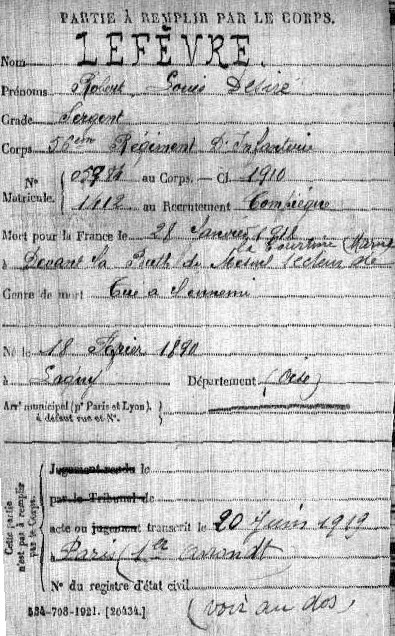 PARTIE À REMPLIR PAR LE CORPS.
Nom LEFÈVRE.
Prénoms Robert Louis Désiré
Grade Sergent
Corps 56ème Régiment D'Infanterie
Nº 05784 au Corps. — Cl. 1910
Matricule. 1412 au Recrutement Compiègne
Mort pour la France le 28 Janvier
de Tourbine (Marne
à Devant la Butte du Mesnil secteur de
Genre de mort Tué à l'ennemi
Né le 18 Février 1890
à Lagny Département (Oise)
Arrt municipal (pr Paris et Lyon),
à défaut rue et Nº.
Cette partie
n'est pas à remplir
par le Corps.
Jugement rendu le
par le Tribunal de
acte ou jugement transcrit le 20 Juin 1919
à Paris (1er arrondt
Nº du registre d'état civil
534-708-1921. [26434.]
(voir au dos)